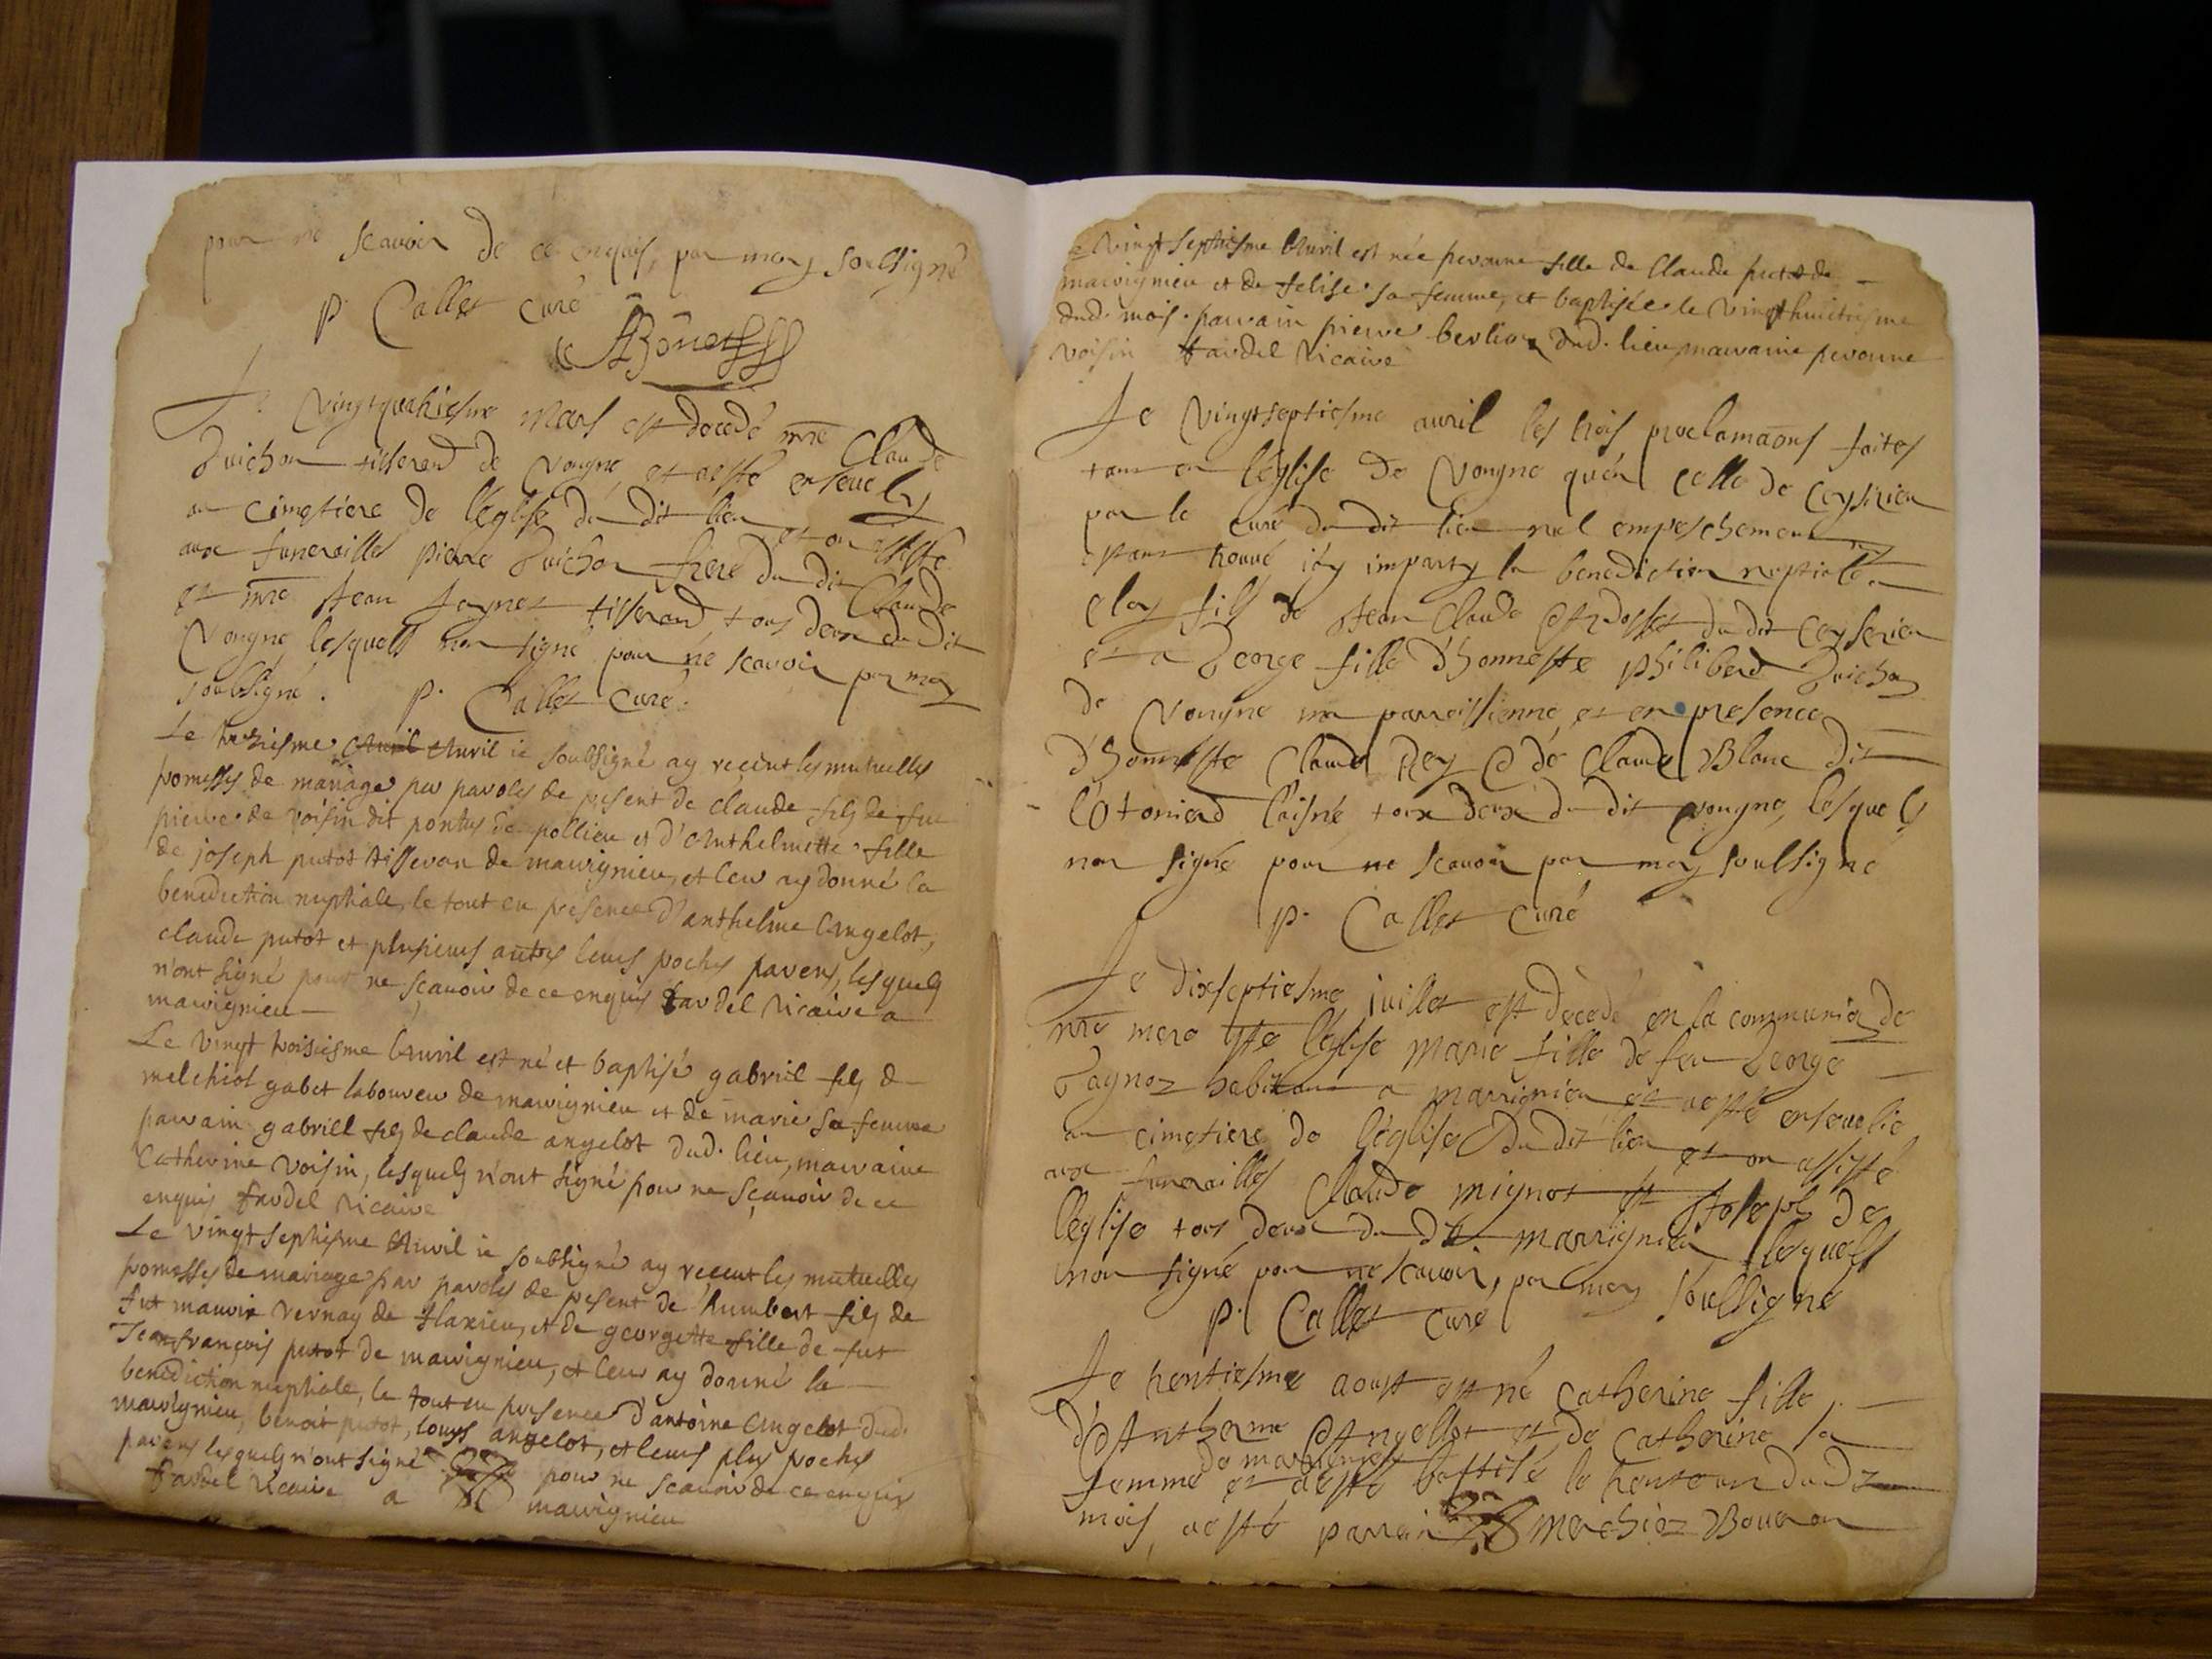 pour ne scavoir de ce enquis, par moy soussigné
p. Callet curé
ABonet
Le vingtquatriesme Mars est decedé mre Claude
Guichon tisserand de Vongne, et a esté ensevely
au cimetiere de l'église du dit lieu et on assisté
aux funerailles pierre Guichon frere du dit Claude
et mre Jean tisserand tous deux du dit
Vongne lesquels non signé pour ne scavoir par moy
soubsigné. p. Callet curé.
Le Avril ie soubsigné ay receut les mutuelles
promesses de mariage par paroles de present de claude fils de fut
pierre de voisin dit pontus de pollieu et d'Anthelmette fille
de joseph putot tisseran de mavrignieu, et leur ay donné la
benediction nuptiale, le tout en presence d'anthelme Angelot,
claude putot et plusieurs autres leurs proches parens, lesquels
n'ont signé pour ne sçavoir de ce enquis fardel vicaire a
mavrignieu
Le vingt troisiesme Avril est né et baptisé gabriel fils de
melchiol gabet laboureur de mavrignieu et de marie sa femme
parrain gabriell fils de claude angelot dud. lieu, marraine
Catherine voisin, lesquels n'ont signé pour ne sçavoir de ce
enquis fardel vicaire
Le vingt septiesme Avril ie soubsigné ay receut les mutuelles
promesses de mariage par paroles de present de humbert fils de
fut mauris vernay de flaxieu, et de georgette fille de fut
Jeanfrançois putot de mavrignieu, et leur ay donné la
benediction nuptiale, le tout en presence d'antoine Angelot dud.
mavrignieu, benoit putot, louys angelot, et leurs plus proches
parens lesquels n'ont signé pour ne scavoir de ce enquis
fardel vicaire a mavrignieu
Le vingt septiesme Avril est née peronne fille de Claude putot de
mavrignieu et de felise sa femme, et baptisée le vingthuictiesme
dud. mois. parrain pierre berlion dud. lieu, marraine peronne
voisin fardel vicaire
Le vingtseptiesme avril les trois proclamaons faites
tant en l'église de Vongne qu'en celle de Ceysirieu
par le curé du dit lieu nul empeschement
estant trouvé i'ay imparty la benediction nuptiale a
eloy fils de Jean Claude du dit Ceyserieu
et a George fille d'honneste philiberd Guichon
de Vongne ma parroissienne, et en presence
d'honneste Claude Rey et de Claude Blanc dit
l'aisné tous deux du dit vongne, lesquels
non signé pour ne scavoir par moy soulsigné
p. Callet curé
Le dixseptiesme juillet est decedé en la communion de
nre mere ste l'eglise Marie fille de feu George
Gagnoz habitant a marrignieu, et a esté ensevelie
au cimetiere de l'église du dit lieu et on assisté
aux funerailles Claude mignot et Joseph de
l'eglise tous deux du dit marrignieu lesquels
n'on signé pour ne scavoir, par moy soulsigné
p. Callet curé
Le trentiesme aoust est né Catherine fille
d'Antherme Angellot et de Catherine sa
de marrignieu
femme et a esté battisé le trente un du dit
mois, a esté parrain merchioz Bouvron